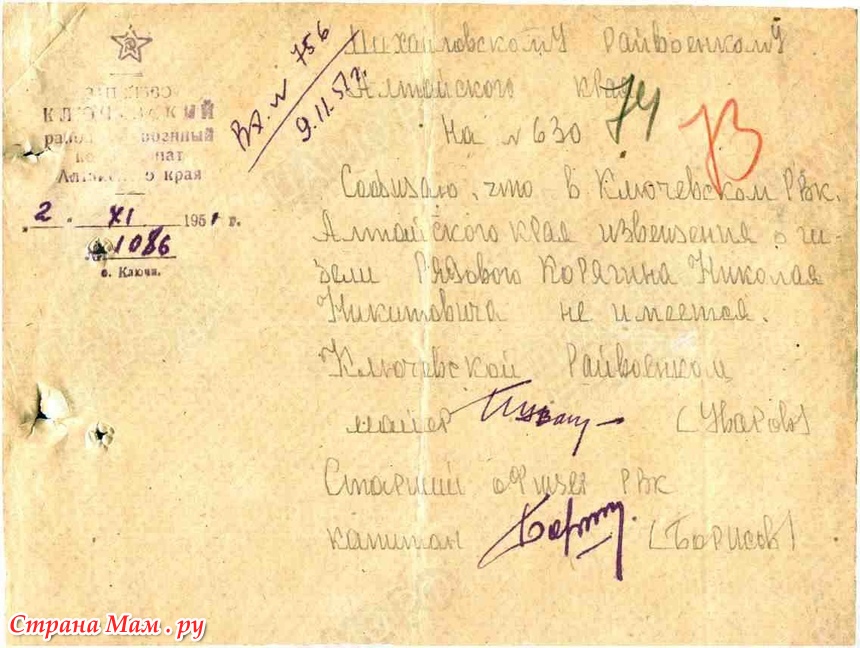 КЛЮЧЕВСКИЙ
Алтайского края
"2" XI 1951 г.
№ 1086
с. Ключи.
Вх. № 756
9.11.51 г.
Михайловскому Райвоенкому
Алтайского края
На № 630
74
73
Сообщаю, что в Ключевском РВК.
Алтайского края извещения о ги-
бели Рядового Корягина Николая
Никитовича не имеется.
Ключевской Райвоенком
майор (Уваров)
Старший офицер РВК
капитан (Борисов)
Страна Мам.ру